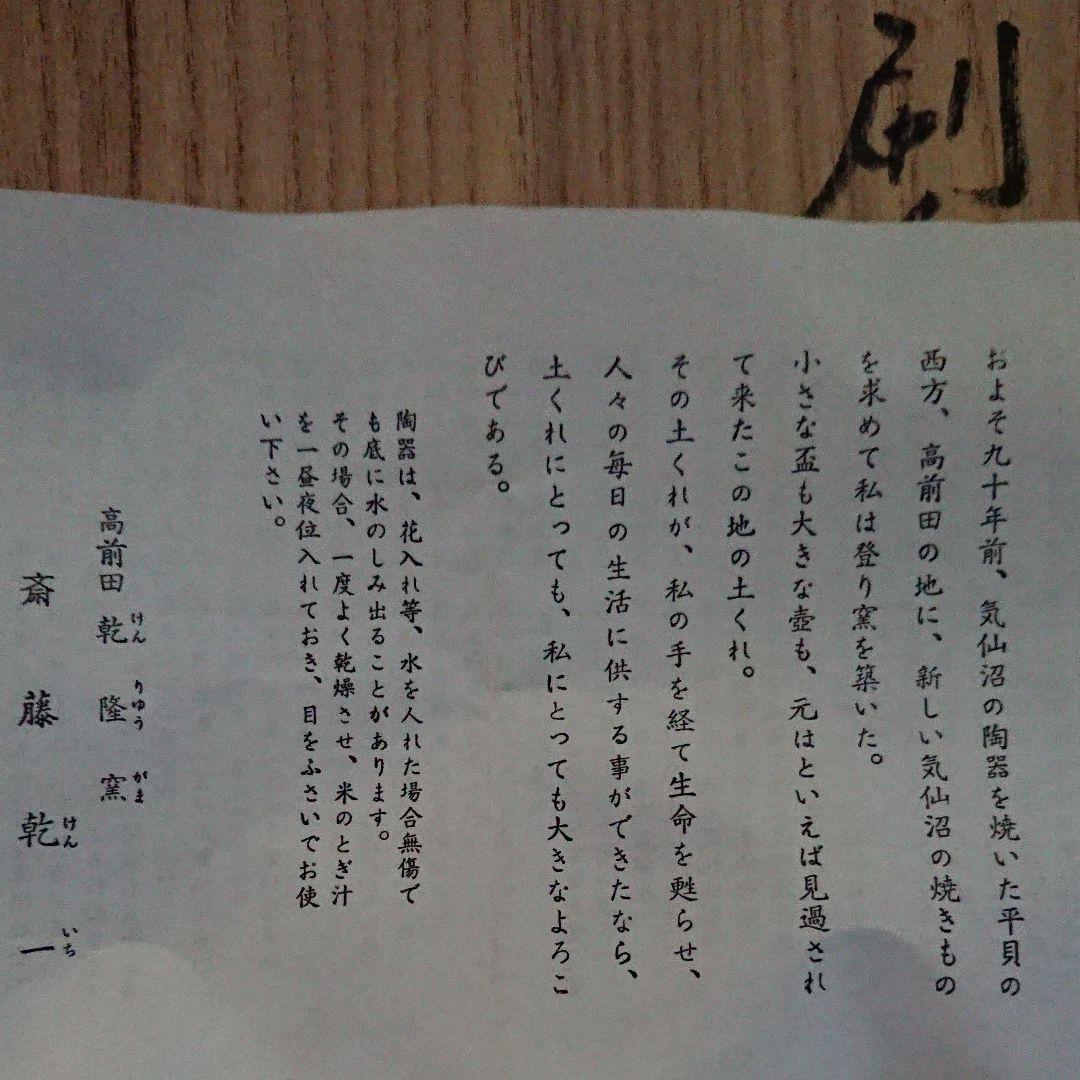 およそ九十年前、気仙沼の陶器を焼いた平貝の
西方、高前田の地に、新しい気仙沼の焼きもの
を求めて私は登り窯を築いた。
小さな盃も大きな壺も、元はといえば見過され
て来たこの地の土くれ。
その土くれが、私の手を経て生命を甦らせ、
人々の毎日の生活に供する事ができたなら、
土くれにとっても、私にとっても大きなよろこ
びである。
陶器は、花入れ等、水を入れた場合無傷で
も底に水のしみ出ることがあります。
その場合、一度よく乾燥させ、米のとぎ汁
を一昼夜位入れておき、目をふさいでお使
い下さい。
高前田乾隆窯
けんりゅうがま
斎藤乾一
けんいち